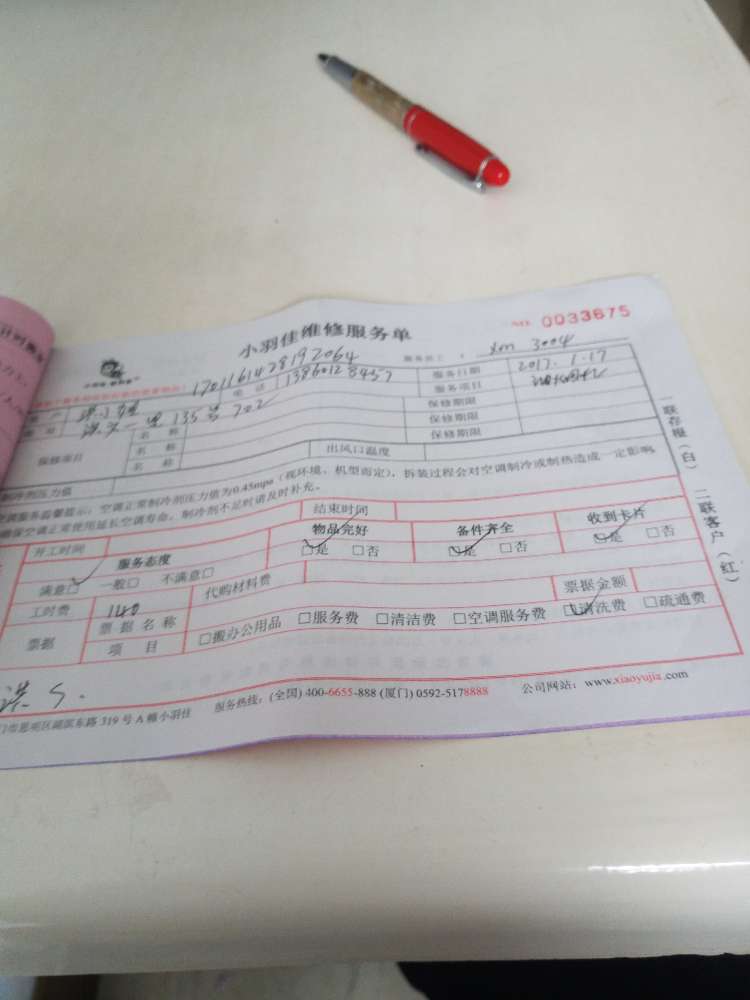 小羽佳维修服务单
NO. 0033675
xm 3004
1701161478192064
电 话 13860128457
服务日期 2017.1.17
服务项目
135号702
保修项目
名 称
名 称
名 称
保修期限
保修期限
保修期限
制冷剂压力值
出风口温度
空调服务温馨提示：空调正常制冷剂压力值为0.45mpa（视环境、机型而定），拆装过程会对空调制冷或制热造成一定影响，
确保空调正常使用延长空调寿命，制冷剂不足时请及时补充。
开工时间
结束时间
服务态度
物品完好
备件齐全
收到卡片
满意□ 一般□ 不满意□
□是 □否
□是 □否
□是 □否
工时费 140
代购材料费
票据金额
票据
票 据 名 称
项 目
□搬办公用品 □服务费 □清洁费 □空调服务费 □清洗费 □疏通费
门市思明区湖滨东路 319 号 A 幢小羽佳
服务热线：(全国) 400-6655-888 (厦门) 0592-5178888
公司网站：www.xiaoyujia.com
一联存根（白） 二联客户（红）